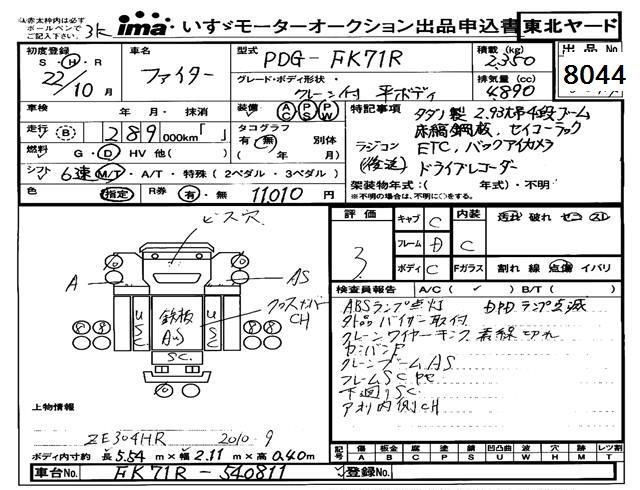 赤太枠内は必ず
ボールペンで
ご記入下さい。
3K
ima・いすゞモーターオークション出品申込書
東北ヤード
初度登録
S・H・R
22/10月
車名
ファイター
型式 PDG-FK71R
グレード・ボディ形状
クレーン付 平ボディ
積載(kg)
2,350
排気量(cc)
4,890
出品No
8044
車検 年・月・抹消
走行 B 289,000km「 」
燃料 G・D・HV 他( )
シフト 6速 M/T・A/T・特殊(2ペダル・3ペダル)
色 指定 R券 有・無 11,010円
装備 AC PS PW
タコグラフ 別体
有・無 ( 年 月)
特記事項
タダノ製 2.93t吊 4段ブーム
床縞鋼板、セイコーラック
ラジコン ETC、バックアイカメラ
(後送) ドライブレコーダー
架装物年式:( 年式)・不明
※不明の場合は、不明に○をする。
評価
3
キャブ C
フレーム D
ボディ C
内装 C
Fガラス
汚れ 破れ セコ スレ
割れ 線 点傷 イバリ
検査員報告 A/C( ✓ ) B/T( )
ABSランプ点灯 DPDランプ点滅
外品バイザー取付
クレーンワイヤーキンク 素線切れ
カンバンP
クレーンブームAS
フレームSCサビ
下廻りSC
アオリ内側CH
ビス穴
A
AS
クロスメンバー
CH
USC
鉄板
AUS
USC
SC
8 8
8 8
上物情報
ZE304HR 2010 9
ボディ内寸約 長5.54m×幅2.11m×高0.40m
車台No. FK71R-540811
登録No.
記号 傷 板金 腐 塗 錆 凹凸曲 波 穴 跡 レツ割
A B C P S U W H M T